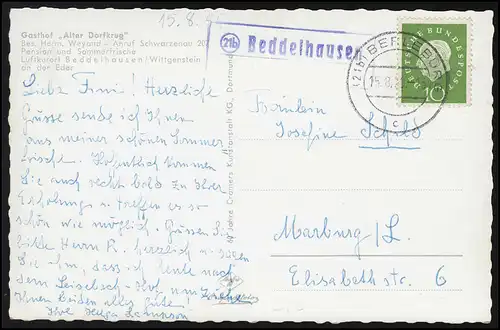 15.8.
Gasthof „Alter Dorfkrug"
Bes. Herm. Weyand - Anruf Schwarzenau 207
Pension und Sommerfrische
Luftkurort Beddelhausen/Wittgenstein
an der Eder
(21b) Beddelhausen
(21b) BERLEBURG
15.8.
c
DEUTSCHE BUNDESPOST
10
Liebe Frini! Herzliche
Grüsse sende ich Ihnen
aus meiner schönen Sommer
frische. Hoffentlich kommen
Sie auch recht bald zu Ihrer
Erholung u. treffen es so
schön wie möglich. Grüssen Sie
bitte Herrn R. herzlich u. sagen
Sie ihm, dass ich heute nach
dem
Ihnen beiden alles Gute!
Ihre Helga
60 Jahre Cramers Kunstanstalt KG., Dortmund
Fräulein
Josefine Schild
Marburg/L.
Elisabethstr. 6